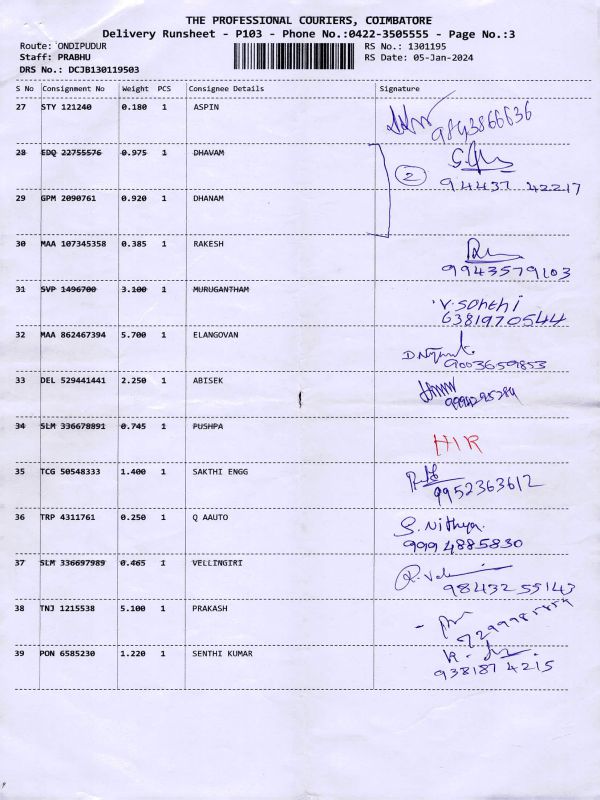 THE PROFESSIONAL COURIERS, COIMBATORE
Delivery Runsheet - P103 - Phone No.:0422-3505555 - Page No.:3
Route: ONDIPUDUR RS No.: 1301195
Staff: PRABHU RS Date: 05-Jan-2024
DRS No.: DCJB130119503
S No Consignment No Weight PCS Consignee Details Signature
27 STY 121240 0.180 1 ASPIN 9843866636
28 EDQ 22755576 0.975 1 DHAVAM
2 94437 42217
29 GPM 2090761 0.920 1 DHANAM
30 MAA 107345358 0.385 1 RAKESH
9943579103
31 SVP 1496700 3.100 1 MURUGANTHAM
V. SANTHI
6381970544
32 MAA 862467394 5.700 1 ELANGOVAN
9003659853
33 DEL 529441441 2.250 1 ABISEK
34 SLM 336678891 0.745 1 PUSHPA
HIR
35 TCG 50548333 1.400 1 SAKTHI ENGG
9952363612
36 TRP 4311761 0.250 1 Q AAUTO
S. Nithya.
9994885830
37 SLM 336697989 0.465 1 VELLINGIRI
98432 55143
38 TNJ 1215538 5.100 1 PRAKASH
39 PON 6585230 1.220 1 SENTHI KUMAR
938187 4215